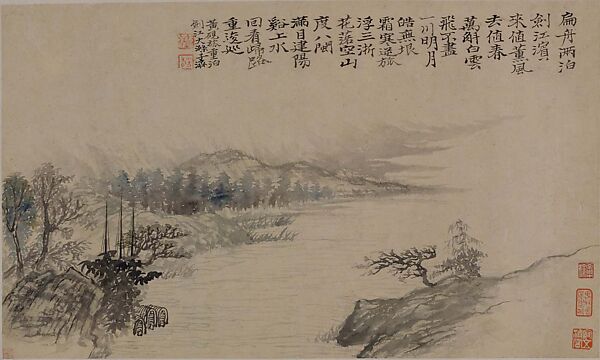 扁舟兩泊
劍江濱
來值薰風
去值春
萬斛白雲
飛不盡
一川明月
皓無垠
霜寒逆旅
浮三浙
花落空山
度八閩
滿目建陽
谿上水
回看歸路
重逡巡
重泊
劍江